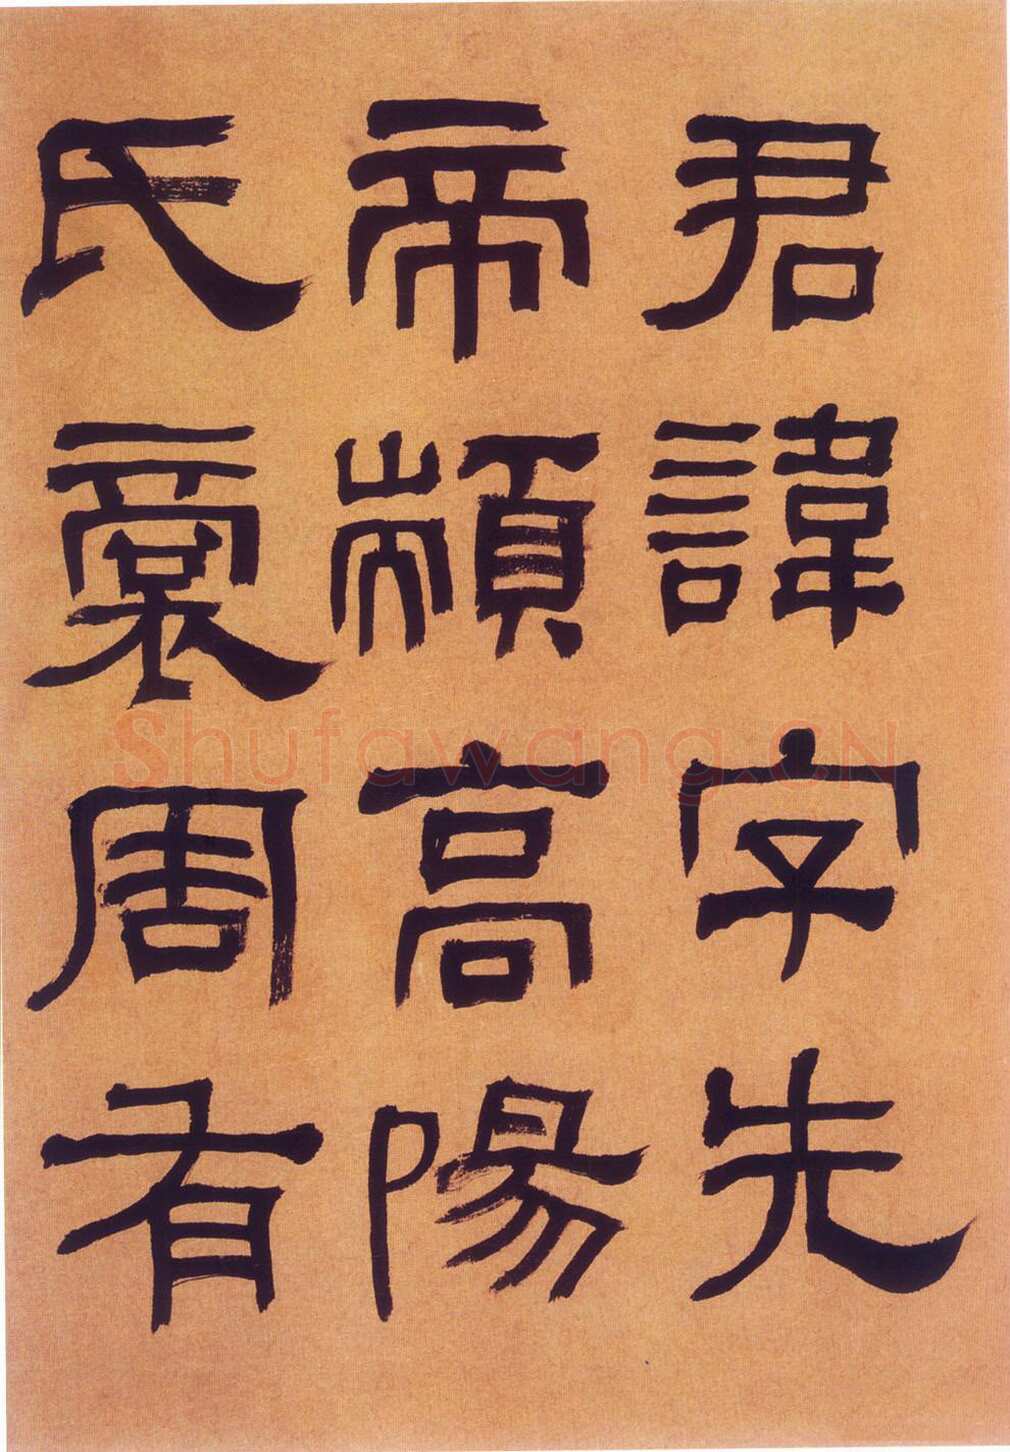 君諱字先
帝顓高陽
氏裔周有
Shufawang.CN